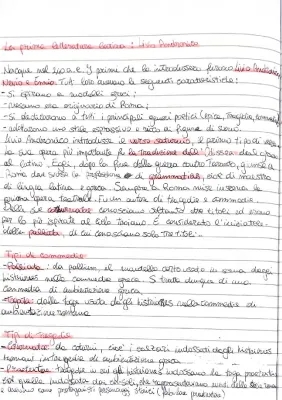 La prima letteratura latina: Livio Andronico
Nacque nel III a.C. I primi che la introdussero furono Livio Andronico,
Nevio e Ennio. Tutti loro avevano le seguenti caratteristiche:
- Si ispirano a modelli greci;
- nessuno era originario di Roma;
- Si dedicarono a tutti i principali generi poetici (epica, tragedia, commedia)
- utilizzano uno stile espressivo e ricco di figure di suono.
Livio Andronico introdusse il verso saturnio, il primo tipo di
la sua opera più importante fu la traduzione dell'Odissea dal greco
al latino. Egli, dopo la fine della guerra contro Taranto, giunse a
Roma dove svolse la professione di grammaticus, cioè di maestro
di lingua latina e greca. Sempre a Roma mise in scena la
prima opera teatrale. Fu un autore di tragedie e commedie.
Delle sue cothurnatae conosciamo soltanto tre titoli ed erano
per lo più ispirate al ciclo troiano. È considerato l'iniziatore
della palliata, di cui conosciamo solo tre titoli.
Tipi di commedie
- Palliata: da pallium, il mantello corto usato in scena dagli
histriones nelle commedie greca. Si tratta dunque di una
commedia di ambientazione greca.
- Togata: dalla toga usata dagli histriones nelle commedie di
ambientazione romana.
Tipi di tragedie
- Cothurnata: da coturni, cioè i calzari indossati dagli histriones
romani in tragedie di ambientazione greca
- Praetexta: tragedie in cui gli histriones indossavano la toga praetexta
cioè quella indossata dai consoli, che rappresentavano
e avevano come protagonisti personaggi storici